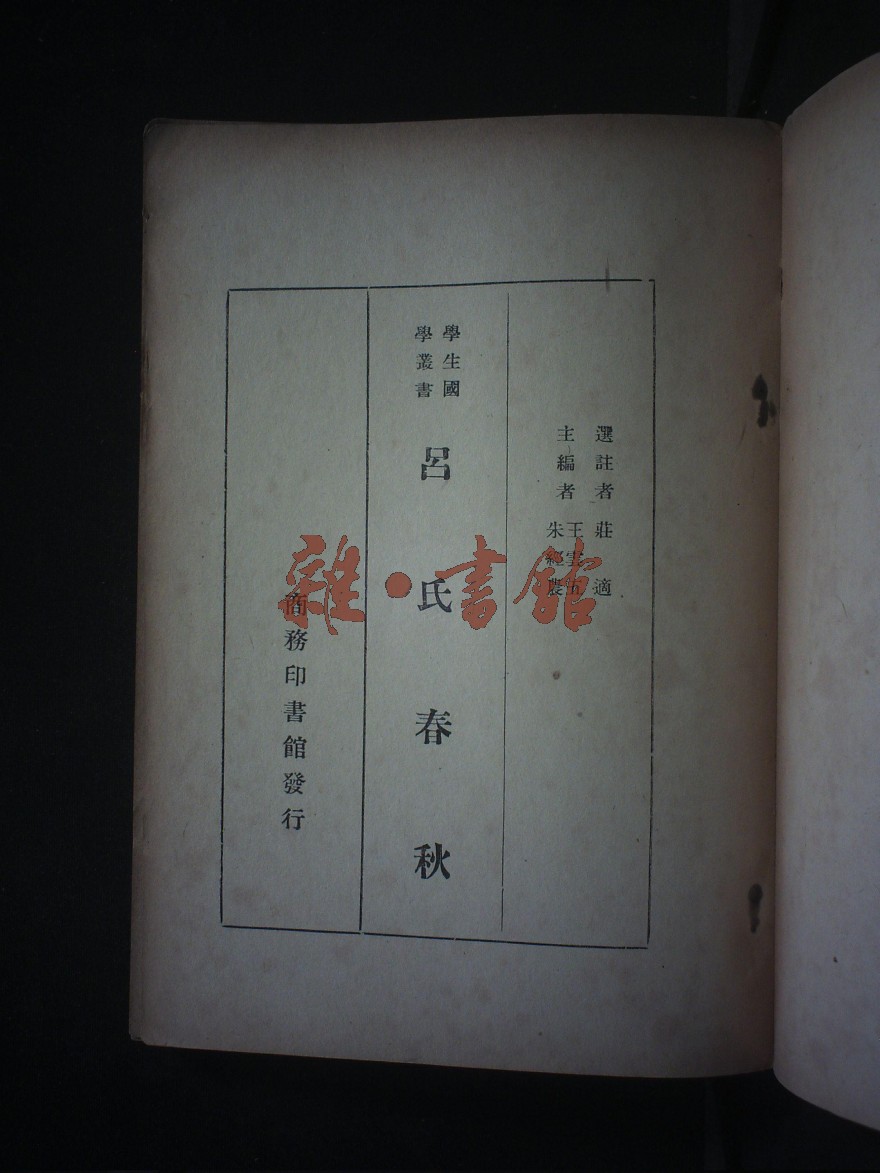 選註者 莊適
主編者 王雲五 朱經農
學生國
學叢書
呂氏春秋
商務印書館發行
雜·書館